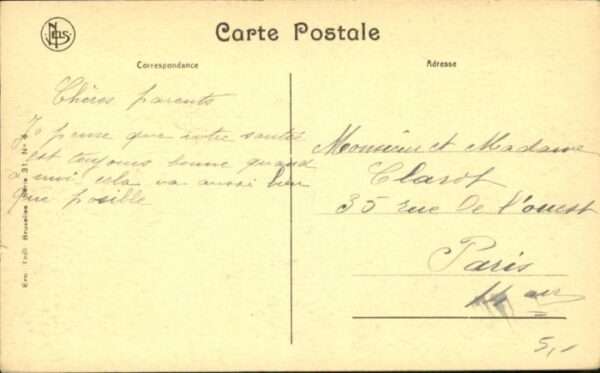 Nels
Carte Postale
Correspondance
Adresse
Chères parents
Je pense que votre santée
est toujours bonne quand
a moi cela va aussi bien
que posible
Ern. Thill Bruxelles Série 31, N°
Monsieur et Madame
Clarot
35 rue De l'ouest
Paris
14 em